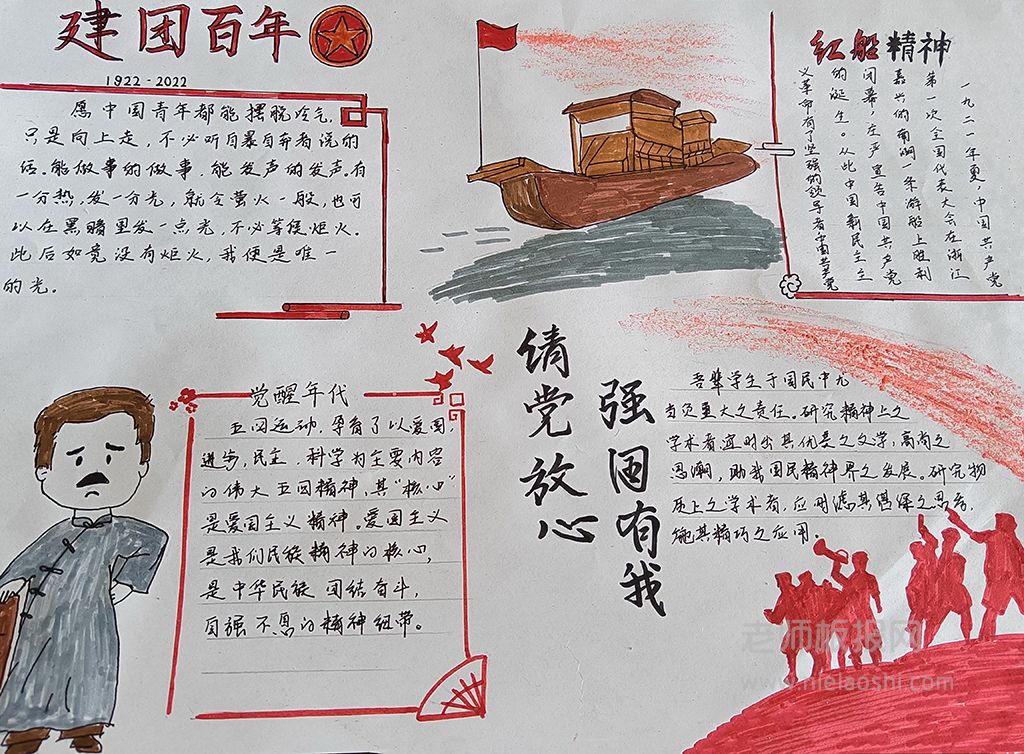 建团百年
1922-2022
愿中国青年都能摆脱冷气,
只是向上走,不必听自暴自弃者说的
话。能做事的做事,能发声的发声。有
一分热,发一分光,就令萤火一般,也可
以在黑暗里发一点光,不必等侯炬火。
此后如竟没有炬火,我便是唯一
的光。
红船精神
一九二一年夏,中国共产党
第一次全国代表大会在浙江
嘉兴的南湖一条游船上胜利
闭幕,庄严宣告中国共产党
的诞生。从此中国新民主主
义革命有了坚强的领导者中国共产党
觉醒年代
五四运动,孕育了以爱国,
进步,民主,科学为主要内容
的伟大五四精神,其“核心”
是爱国主义精神。爱国主义
是我们民族精神的核心,
是中华民族团结奋斗,
自强不息的精神纽带。
请党放心
强国有我
吾辈学生于国民中尤
当负重大之责任。研究精神上之
学术者宜时出其优美之文学,高尚之
思潮,助我国民精神界之发展。研究物
质上之学术者,应用其湛深之思考,
施其精巧之应用。
老师板报网
www.nielaoshi.com